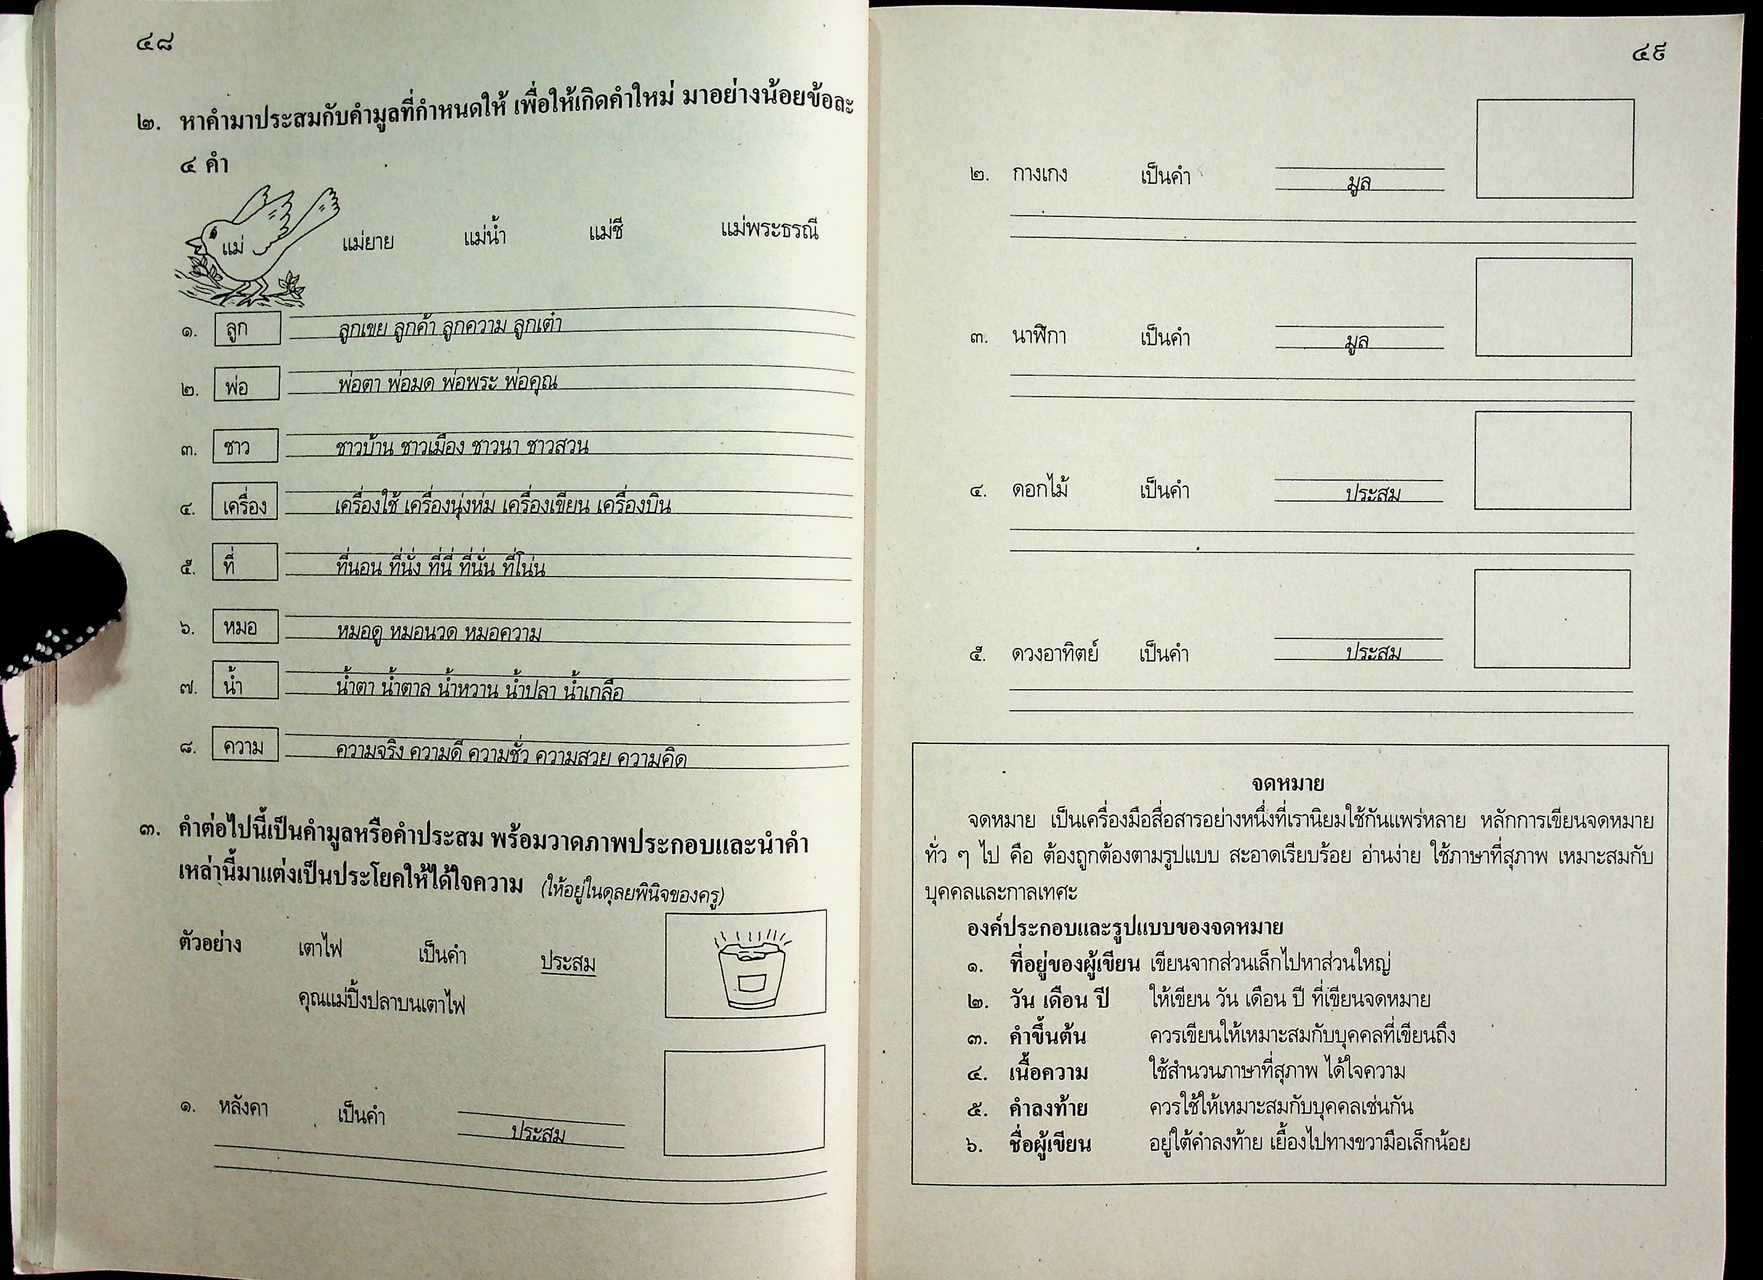 ๔๘
๒. หาคำมาประสมกับคำมูลที่กำหนดให้ เพื่อให้เกิดคำใหม่ มาอย่างน้อยข้อละ
๔ คำ
แม่ แม่ยาย แม่น้ำ แม่ชี แม่พระธรณี
๑. ลูก ลูกเขย ลูกค้า ลูกความ ลูกเต๋า
๒. พ่อ พ่อตา พ่อมด พ่อพระ พ่อคุณ
๓. ชาว ชาวบ้าน ชาวเมือง ชาวนา ชาวสวน
๔. เครื่อง เครื่องใช้ เครื่องนุ่งห่ม เครื่องเขียน เครื่องบิน
๕. ที่ ที่นอน ที่นั่ง ที่นี่ ที่นั่น ที่โน่น
๖. หมอ หมอดู หมอนวด หมอความ
๗. น้ำ น้ำตา น้ำตาล น้ำหวาน น้ำปลา น้ำเกลือ
๘. ความ ความจริง ความดี ความชั่ว ความสวย ความคิด
๓. คำต่อไปนี้เป็นคำมูลหรือคำประสม พร้อมวาดภาพประกอบและนำคำ
เหล่านี้มาแต่งเป็นประโยคให้ได้ใจความ (ให้อยู่ในดุลยพินิจของครู)
ตัวอย่าง เตาไฟ เป็นคำ ประสม
คุณแม่ปิ้งปลาบนเตาไฟ
๑. หลังคา เป็นคำ ประสม
๔๙
๒. กางเกง เป็นคำ มูล
๓. นาฬิกา เป็นคำ มูล
๔. ดอกไม้ เป็นคำ ประสม
๕. ดวงอาทิตย์ เป็นคำ ประสม
จดหมาย
จดหมาย เป็นเครื่องมือสื่อสารอย่างหนึ่งที่เรานิยมใช้กันแพร่หลาย หลักการเขียนจดหมาย
ทั่ว ๆ ไป คือ ต้องถูกต้องตามรูปแบบ สะอาดเรียบร้อย อ่านง่าย ใช้ภาษาที่สุภาพ เหมาะสมกับ
บุคคลและกาลเทศะ
องค์ประกอบและรูปแบบของจดหมาย
๑. ที่อยู่ของผู้เขียน เขียนจากส่วนเล็กไปหาส่วนใหญ่
๒. วัน เดือน ปี ให้เขียน วัน เดือน ปี ที่เขียนจดหมาย
๓. คำขึ้นต้น ควรเขียนให้เหมาะสมกับบุคคลที่เขียนถึง
๔. เนื้อความ ใช้สำนวนภาษาที่สุภาพ ได้ใจความ
๕. คำลงท้าย ควรใช้ให้เหมาะสมกับบุคคลเช่นกัน
๖. ชื่อผู้เขียน อยู่ใต้คำลงท้าย เยื้องไปทางขวามือเล็กน้อย